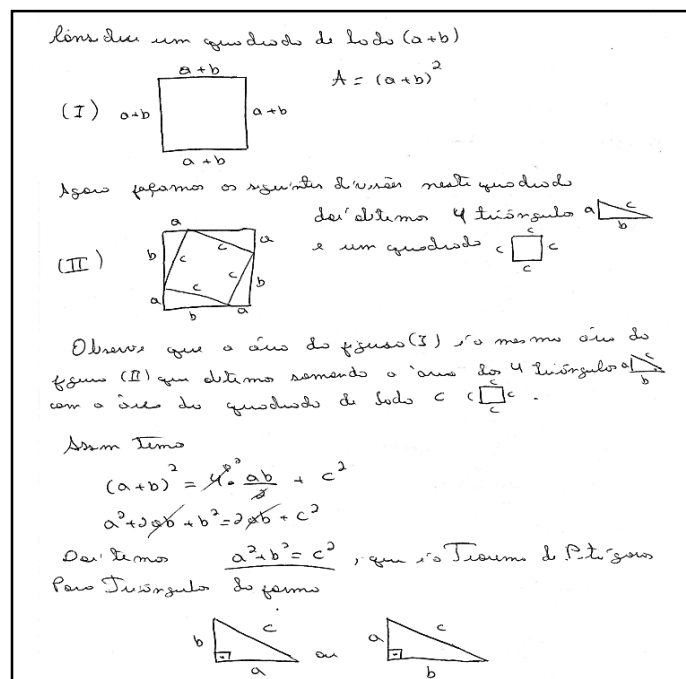 Considere um quadrado de lado (a+b)
a+b
A = (a+b)²
(I) a+b a+b
a+b
Agora façamos as seguintes divisões neste quadrado
daí obtemos 4 triângulos a c b
e um quadrado c c c c
(II) a b a c c c c a b b a
Observe que a área da figura (I) é a mesma área da
figura (II) que obtemos somando a área dos 4 triângulos a c b
com a área do quadrado de lado c c c c c .
Assim temos
(a+b)² = 4² · ab/2 + c²
a²+2ab+b²=2ab+c²
Daí temos a²+b²=c² , que é o Teorema de Pitágoras
Para Triângulos da forma
b c a ou a c b